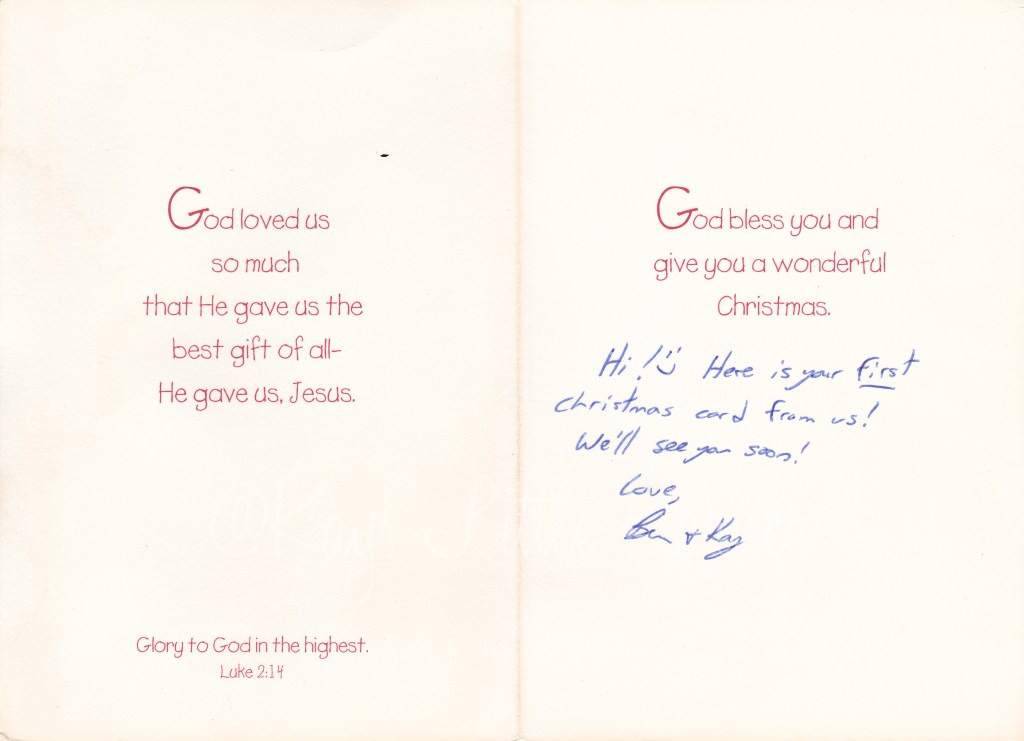 God loved us
so much
that He gave us the
best gift of all-
He gave us, Jesus.
Glory to God in the highest.
Luke 2:14
God bless you and
give you a wonderful
Christmas.
Hi! Here is your first
christmas card from us!
We'll see you soon!
Love,
Ben + Kay